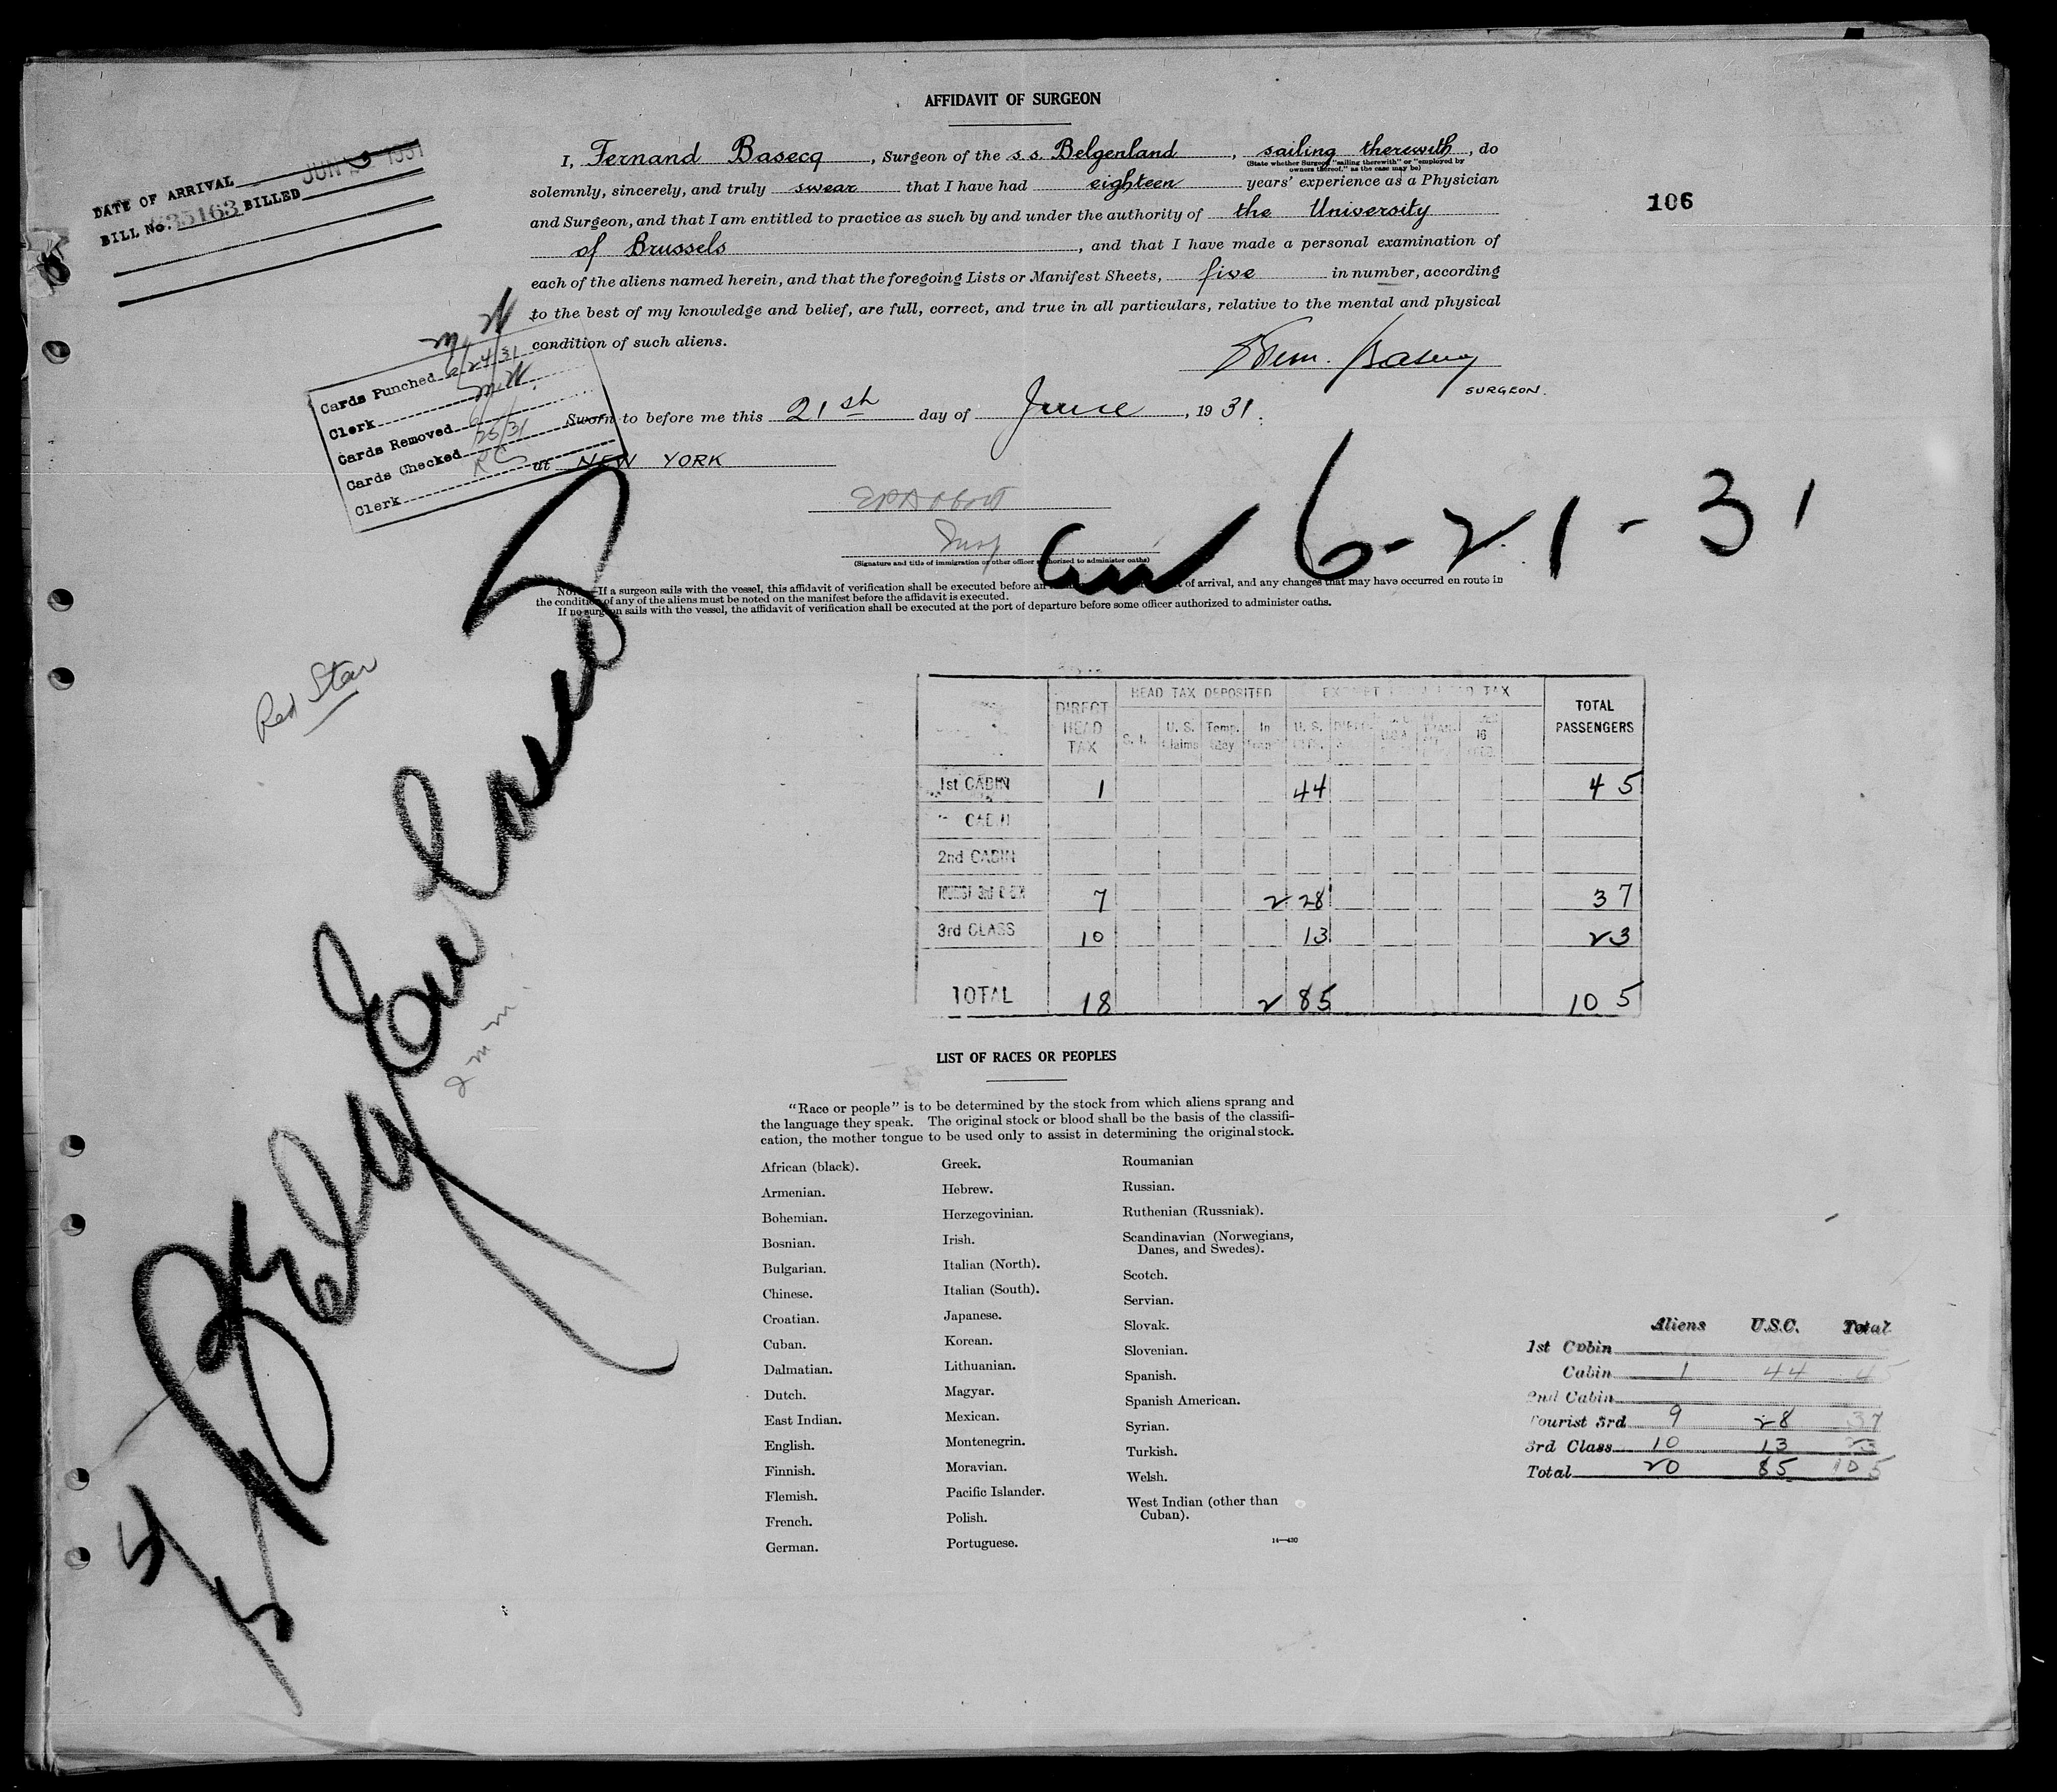 AFFIDAVIT OF SURGEON
I, Fernand Basecq, Surgeon of the s.s. Belgenland, sailing therewith, do
(State whether Surgeon "sailing therewith" or "employed by owners thereof," as the case may be)
solemnly, sincerely, and truly swear that I have had eighteen years' experience as a Physician
and Surgeon, and that I am entitled to practice as such by and under the authority of the University
of Brussels, and that I have made a personal examination of
each of the aliens named herein, and that the foregoing Lists or Manifest Sheets, five in number, according
to the best of my knowledge and belief, are full, correct, and true in all particulars, relative to the mental and physical
condition of such aliens.
Basecq
SURGEON.
Sworn to before me this 21st day of June, 1931.
at NEW YORK
Insp
(Signature and title of immigration or other officer authorized to administer oaths)
6-21-31
NOTE.—If a surgeon sails with the vessel, this affidavit of verification shall be executed before an of arrival, and any changes that may have occurred en route in
the condition of any of the aliens must be noted on the manifest before the affidavit is executed.
If no surgeon sails with the vessel, the affidavit of verification shall be executed at the port of departure before some officer authorized to administer oaths.
106
DATE OF ARRIVAL JUN 1931
BILL No. 35163 BILLED
Cards Punched 6/24/31
Clerk M.W.
Cards Removed
Cards Checked 6/25/31
Clerk RC
Red Star
Belgenland
5
HEAD TAX DEPOSITED EXEMPT FROM HEAD TAX
DIRECT HEAD TAX S. I. U. S. Claims Temp. Stay In Trans. U. S. 16 TOTAL PASSENGERS
1st CABIN 1 44 45
CABIN
2nd CABIN
TOURIST 3rd CABIN 7 2 28 37
3rd CLASS 10 13 23
TOTAL 18 2 85 105
LIST OF RACES OR PEOPLES
"Race or people" is to be determined by the stock from which aliens sprang and
the language they speak. The original stock or blood shall be the basis of the classifi-
cation, the mother tongue to be used only to assist in determining the original stock.
African (black).
Armenian.
Bohemian.
Bosnian.
Bulgarian.
Chinese.
Croatian.
Cuban.
Dalmatian.
Dutch.
East Indian.
English.
Finnish.
Flemish.
French.
German.
Greek.
Hebrew.
Herzegovinian.
Irish.
Italian (North).
Italian (South).
Japanese.
Korean.
Lithuanian.
Magyar.
Mexican.
Montenegrin.
Moravian.
Pacific Islander.
Polish.
Portuguese.
Roumanian
Russian.
Ruthenian (Russniak).
Scandinavian (Norwegians,
Danes, and Swedes).
Scotch.
Servian.
Slovak.
Slovenian.
Spanish.
Spanish American.
Syrian.
Turkish.
Welsh.
West Indian (other than
Cuban).
14—430
Aliens U.S.C. Total
1st Cabin
Cabin 1 44 45
2nd Cabin
Tourist 3rd 9 28 37
3rd Class 10 13 23
Total 20 85 105